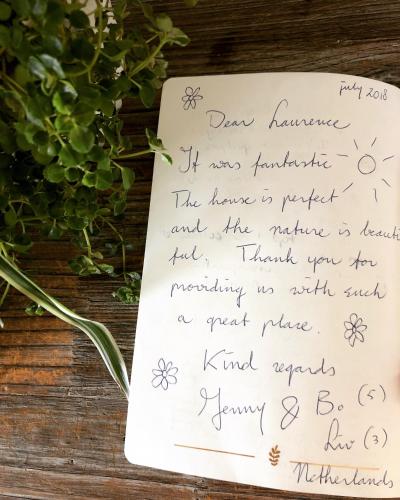 july 2018
Dear Laurence
It was fantastic
The house is perfect
and the nature is beauti
ful. Thank you for
providing us with such
a great place.
Kind regards
Jenny & Bo (5)
Liv (3)
Netherlands